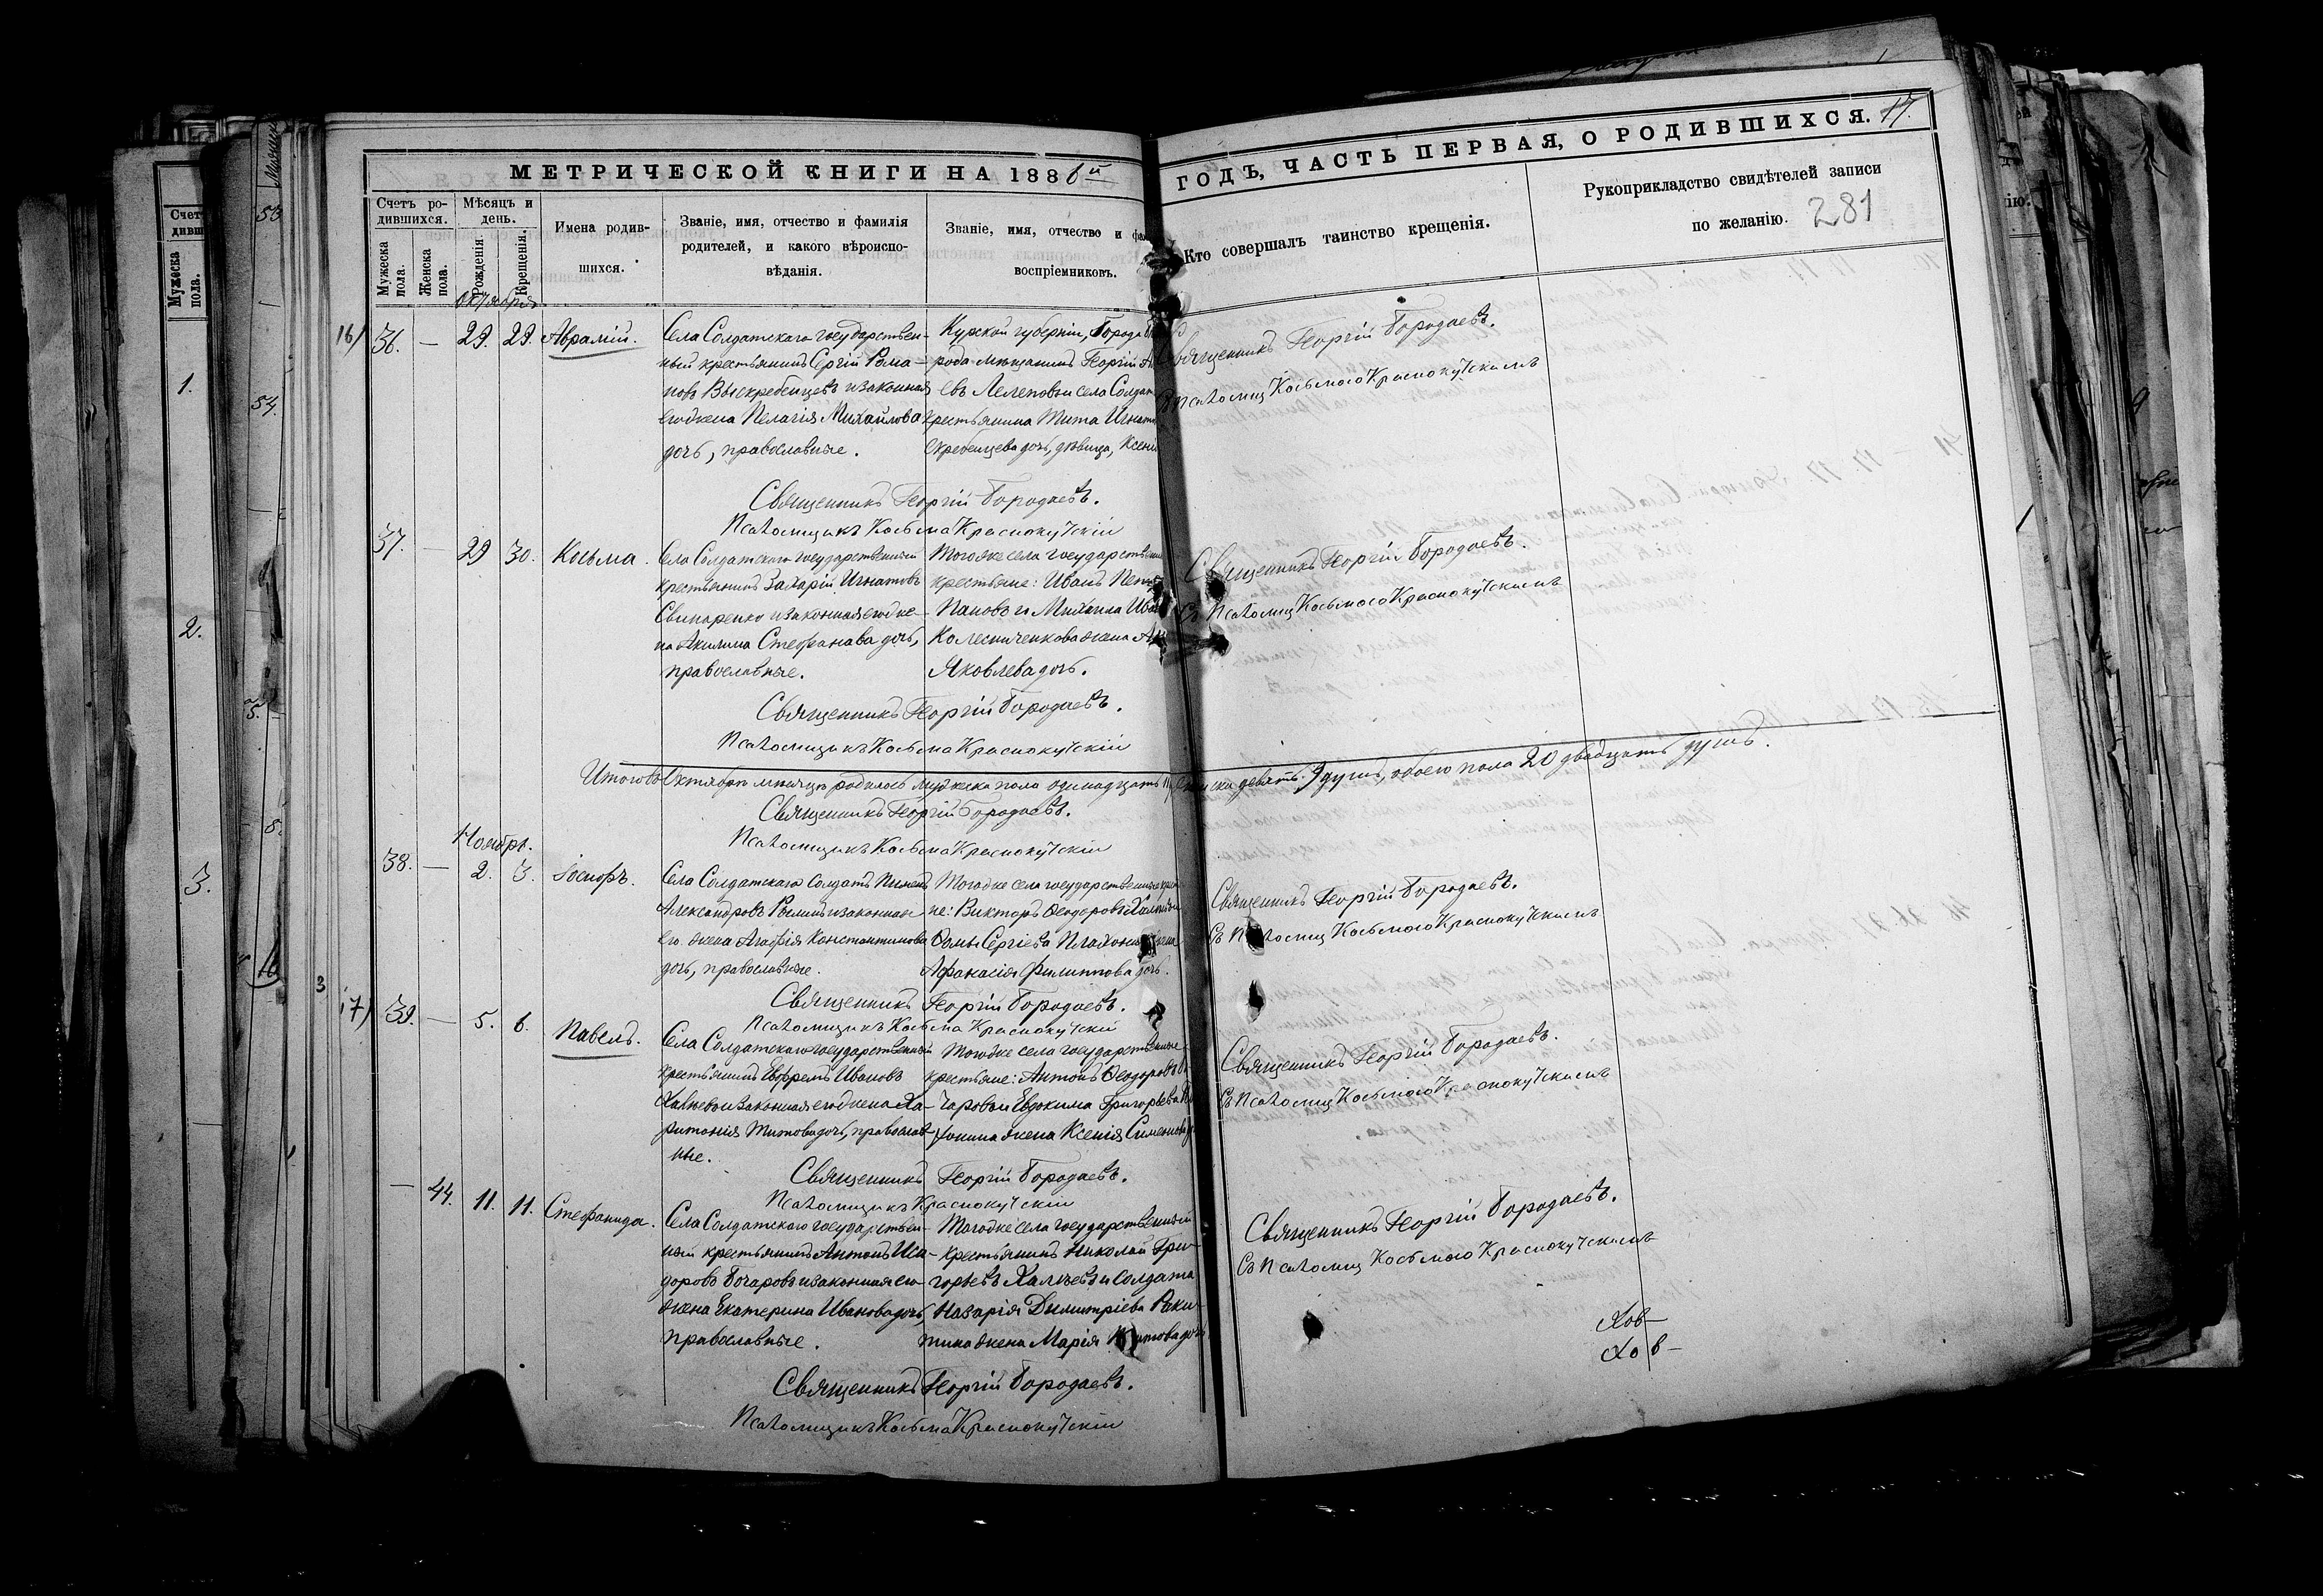 МЕТРИЧЕСКОЙ КНИГИ НА 1886й
ГОДЪ, ЧАСТЬ ПЕРВАЯ, О РОДИВШИХСЯ. 17.
281
Счетъ родившихся.
Мужеска пола.
Женска пола.
Мѣсяцъ и день.
Рожденія
Крещенія.
Имена родившихся.
Званіе, имя, отчество и фамилія
родителей, и какого вѣроиспо-
вѣданія.
Званіе, имя, отчество и
воспріемниковъ.
Кто совершалъ таинство крещенія.
Рукоприкладство свидѣтелей записи
по желанію.
Октября
16) 36. — 29. 29. Аврамій.
Села Солдатскаго государствен-
ный крестьянинъ Сергій Рома-
новъ Выскребенцевъ и законная
его жена Пелагія Михайлова
дочь, православные.
Курской губерніи,
рода мѣщанинъ Георгій
евъ Лелеповъ и села
крестьянина Тита
дочь, дѣвица,
Священникъ Георгій Бородаевъ.
Псаломщ Косьмою Краснокутскимъ
Священникъ Георгій Бородаевъ.
Псаломщикъ Косьма Краснокутскій
37. — 29 30. Косьма.
Села Солдатскаго государственный
крестьянинъ Захарій Игнатовъ
Свинаренко и законная его же-
на Акилина Стефанова дочь,
православные.
Тогоже села
крестьяне: Иванъ
Пановъ и Михаила
Колесниченкова жена
Яковлева дочь.
Священникъ Георгій Бородаевъ.
Съ Псаломщ Косьмою Краснокутскимъ
Священникъ Георгій Бородаевъ.
Псаломщикъ Косьма Краснокутскій
Итого въ Октябрѣ мѣсяцѣ родилось мужеска пола одинадцать 11, женска девять 9 душъ, обоего пола 20 двадцать душъ.
Священникъ Георгій Бородаевъ.
Псаломщикъ Косьма Краснокутскій
Ноябрь.
38. — 2. 3. Іосифъ.
Села Солдатскаго солдатъ Пименъ
Александровъ и законная
его жена Агафія Константинова
дочь, православные.
Тогоже села государственные
не: Викторъ Ѳеодоровъ
Ѳомы Сергіева
Афанасія Филиппова дочь.
Священникъ Георгій Бородаевъ.
Съ Псаломщ Косьмою Краснокутскимъ
Священникъ Георгій Бородаевъ.
Псаломщикъ Косьма Краснокутскій
17) 39. — 5. 6. Павелъ.
Села Солдатскаго государственный
крестьянинъ Евфремъ Ивановъ
Халѣевъ и законная его жена Ха-
ритонія Титова дочь, православ-
ные.
Тогоже села государственные
крестьяне: Антонъ Ѳеодоровъ Бо-
чаровъ и Евдокима Григорьева
жена Ксенія
Священникъ Георгій Бородаевъ.
Съ Псаломщ Косьмою Краснокутскимъ
Священникъ Георгій Бородаевъ.
Псаломщикъ Краснокутскій
— 44. 11. 11. Стефанида.
Села Солдатскаго государствен-
ный крестьянинъ Антонъ Иси-
доровъ Бочаровъ и законная его
жена Екатерина Иванова дочь,
православные.
Тогоже села государственный
крестьянинъ Николай Гри-
горьевъ Халѣевъ и солдата
Назарія Димитріева Раки-
тина жена Марія Титова дочь
Священникъ Георгій Бородаевъ.
Съ Псаломщ Косьмою Краснокутскимъ
Священникъ Георгій Бородаевъ.
Псаломщикъ Косьма Краснокутскій
Счет
дивш
Мужеска пола.
1.
2.
3.
53
54.